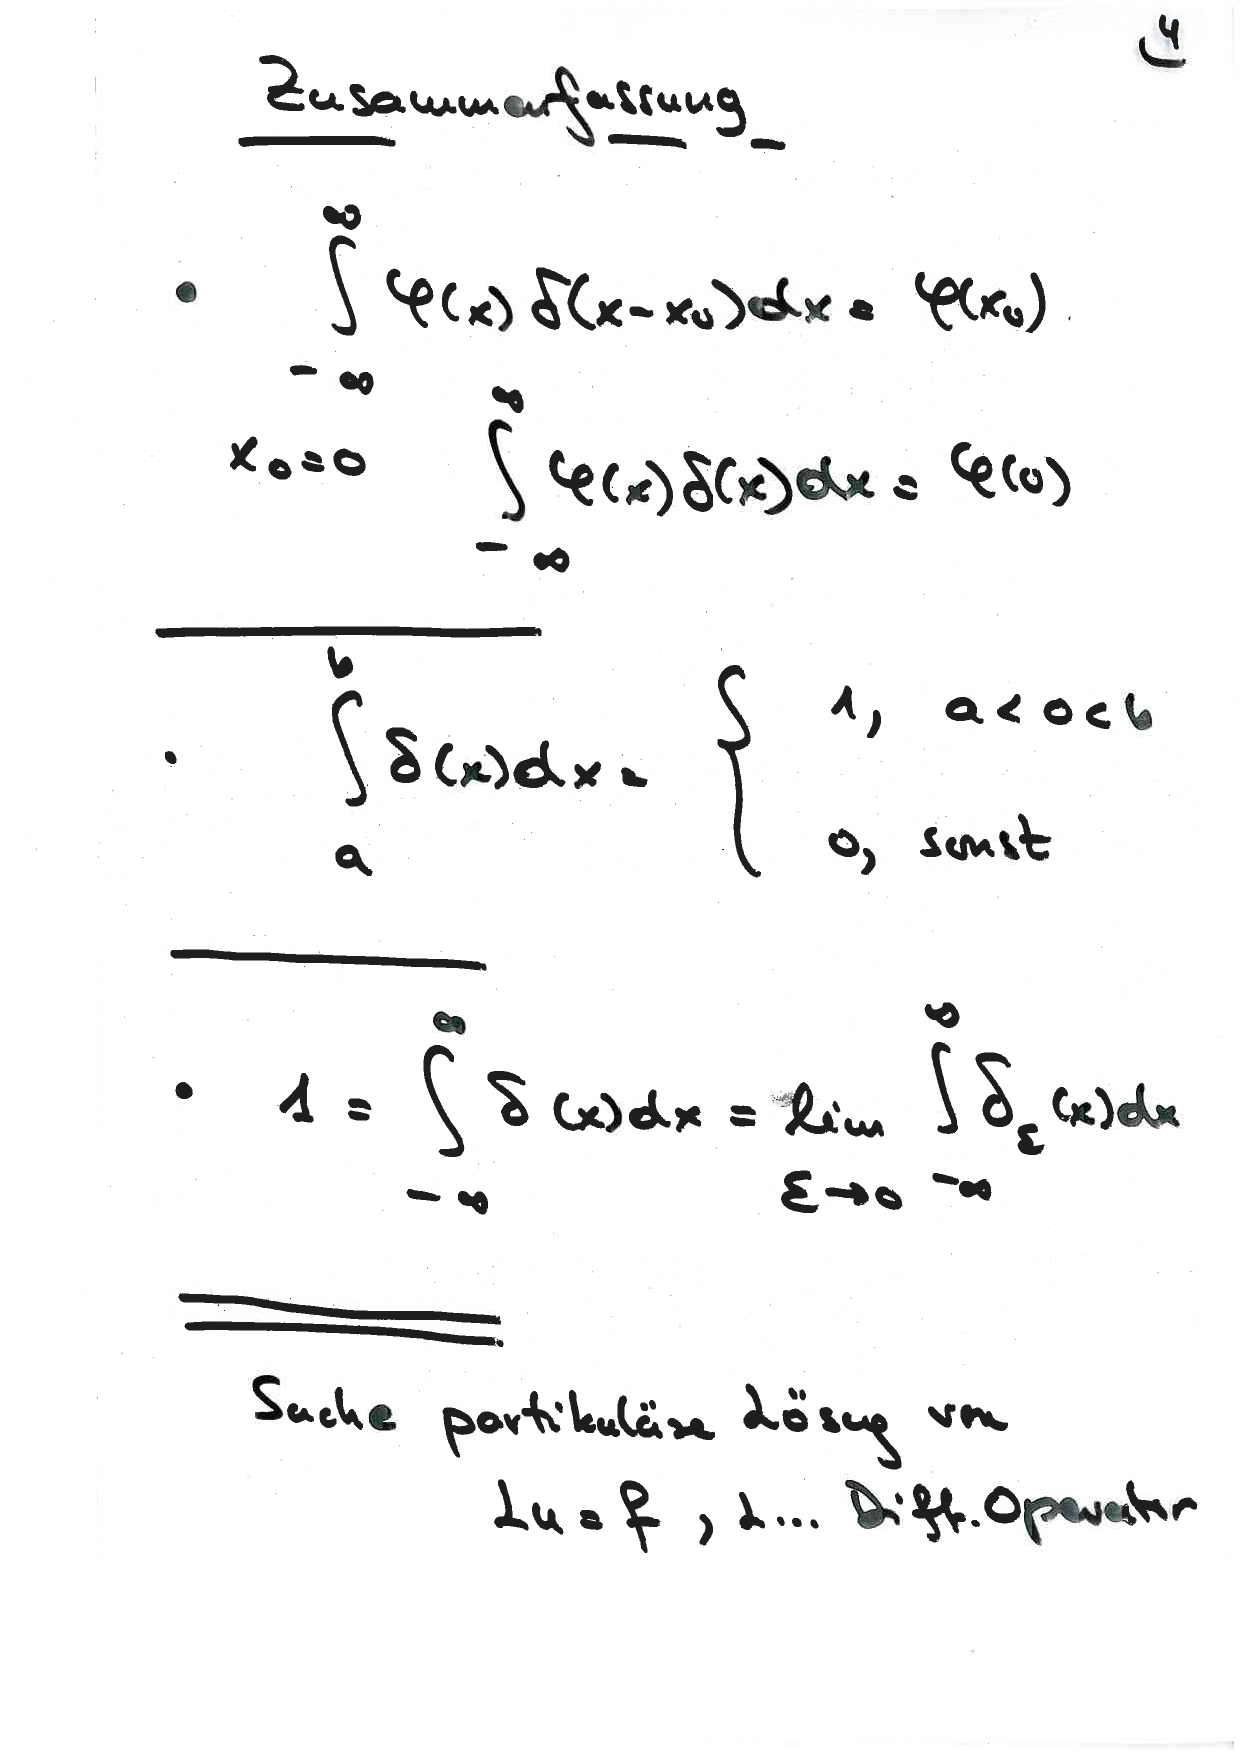 4
Zusammenfassung
• ∫_{-∞}^{∞} φ(x) δ(x-x₀)dx = φ(x₀).
x₀=0 ∫_{-∞}^{∞} φ(x)δ(x)dx = φ(0)
• ∫_{a}^{b} δ(x)dx = { 1, a<0<b
0, sonst
• 1 = ∫_{-∞}^{∞} δ(x)dx = lim_{ε→0} ∫_{-∞}^{∞} δ_ε(x)dx
Suche partikuläre Lösung von
Lu = f, L... Diff.Operator